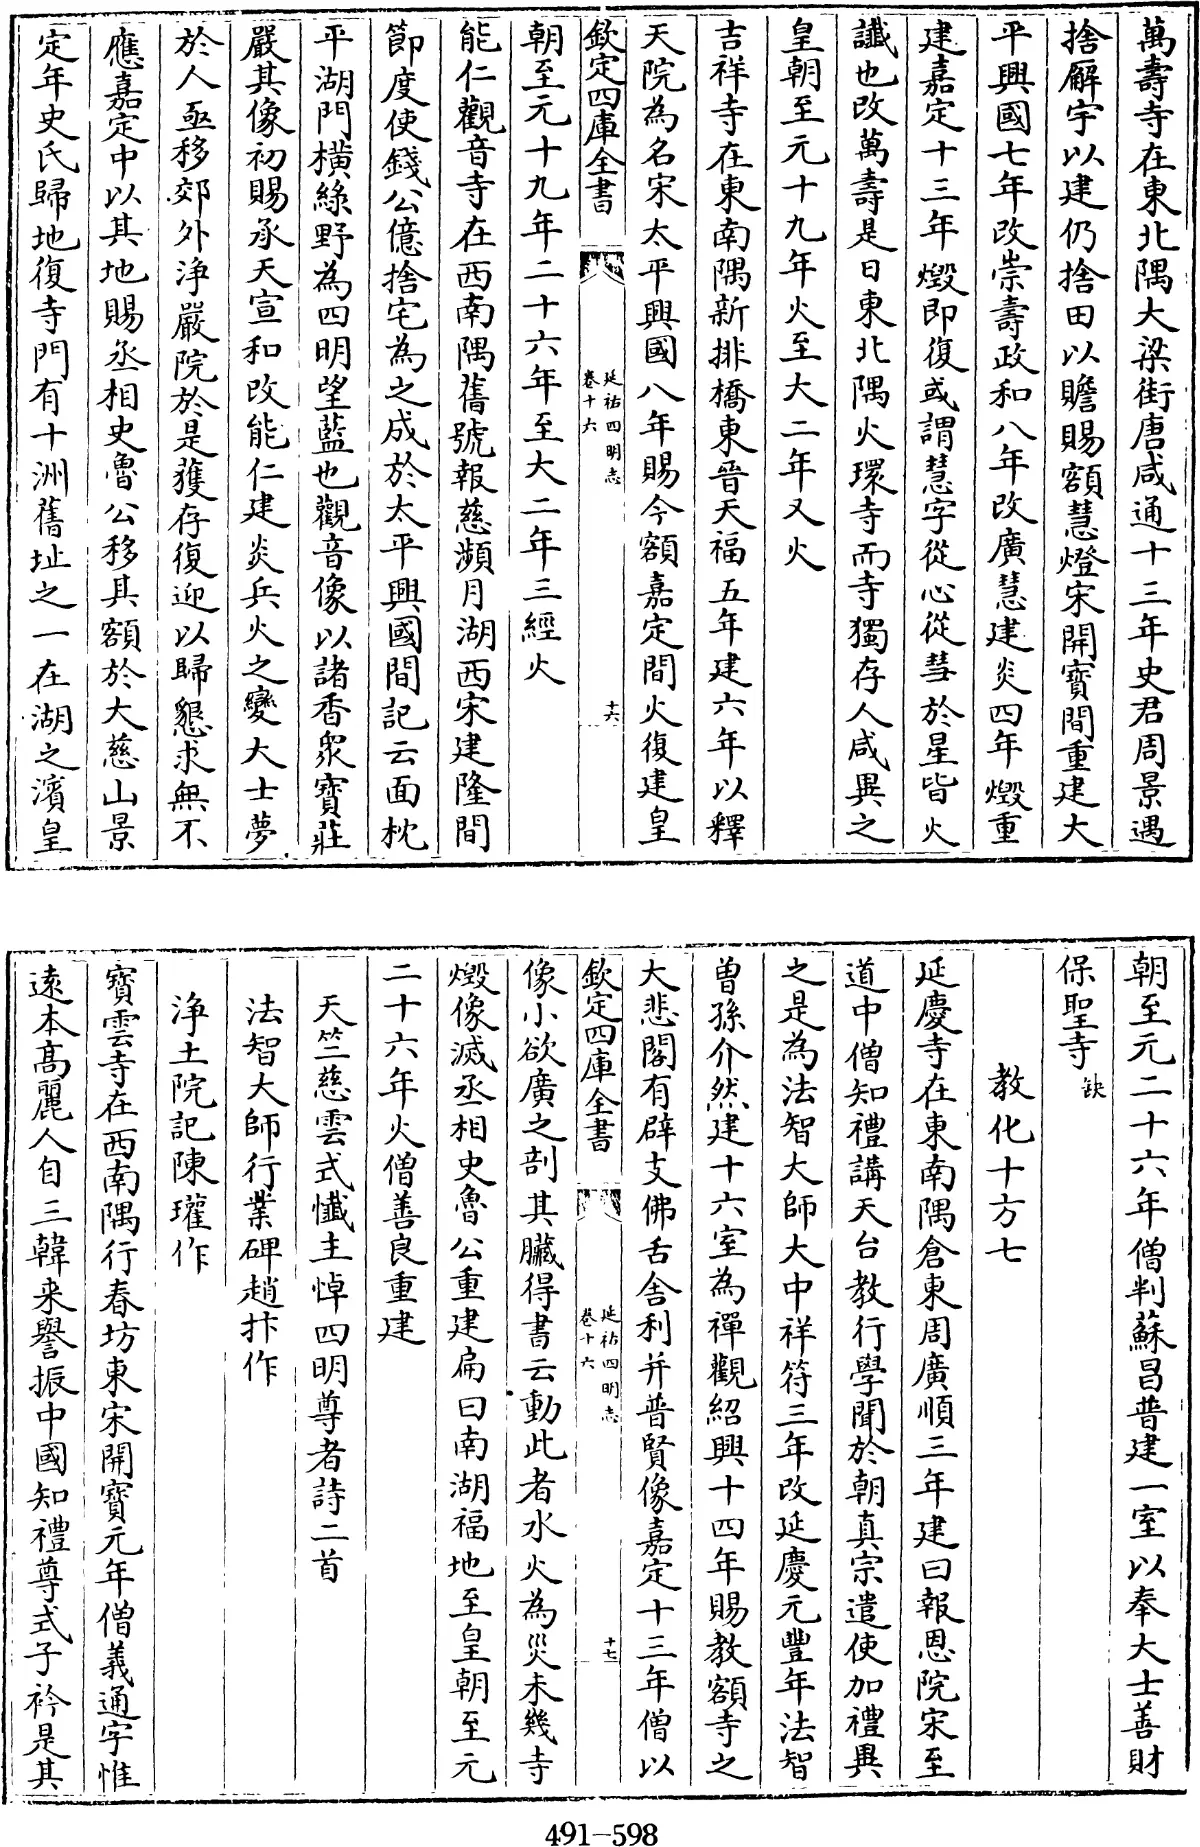 萬壽寺在東北隅大梁街唐咸通十三年史君周景遇
捨廨宇以建仍捨田以贍賜額慧燈宋開寳間重建大
平興國七年改崇壽政和八年改廣慧建炎四年燬重
建嘉定十三年燬即復或謂慧字從心從彗於星皆火
讖也改萬壽是日東北隅火環寺而寺獨存人咸異之
皇朝至元十九年火至大二年又火
吉祥寺在東南隅新排橋東晉天福五年建六年以釋
天院為名宋太平興國八年賜今額嘉定間火復建皇
欽定四庫全書
延祐四明志
卷十六
十六
朝至元十九年二十六年至大二年三經火
能仁觀音寺在西南隅舊號報慈瀕月湖西宋建隆間
節度使錢公億捨宅為之成於太平興國間記云面枕
平湖門橫綠野為四明望藍也觀音像以諸香衆寳莊
嚴其像初賜承天宣和改能仁建炎兵火之變大士夢
於人亟移郊外浄嚴院於是獲存復迎以歸懇求無不
應嘉定中以其地賜丞相史魯公移其額於大慈山景
定年史氏歸地復寺門有十洲舊址之一在湖之濱皇
朝至元二十六年僧判蘇昌普建一室以奉大士善財
保聖寺 缺
教化十方七
延慶寺在東南隅倉東周廣順三年建曰報恩院宋至
道中僧知禮講天台教行學聞於朝真宗遣使加禮異
之是為法智大師大中祥符三年改延慶元豐年法智
曾孫介然建十六室為禪觀紹興十四年賜教額寺之
大悲閣有辟支佛舌舍利并普賢像嘉定十三年僧以
欽定四庫全書
延祐四明志
卷十六
十七
像小欲廣之剖其臟得書云動此者水火為災未幾寺
燬像滅丞相史魯公重建扁曰南湖福地至皇朝至元
二十六年火僧善良重建
天竺慈雲式懺主悼四明尊者詩二首
法智大師行業碑趙抃作
浄土院記陳瓘作
寳雲寺在西南隅行春坊東宋開寳元年僧義通字惟
遠本髙麗人自三韓来譽振中國知禮尊式子衿是其
491-598